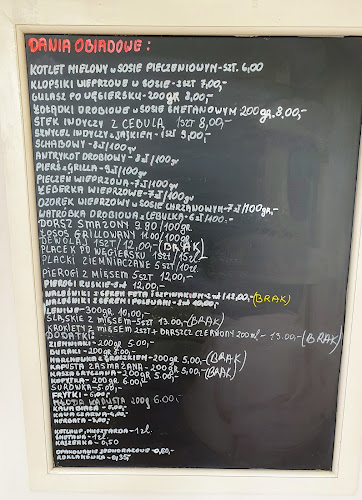 DANIA OBIADOWE:
KOTLET MIELONY W SOSIE PIECZENIOWYM - SZT. 6,00
KLOPSIKI WIEPRZOWE W SOSIE - 3SZT 7,00,-
GULASZ PO WĘGIERSKU - 200 GR 8,00,-
ŻOŁĄDKI DROBIOWE W SOSIE ŚMETANOWYM 200 GR. 8,00,-
STEK INDYCZY Z CEBULĄ 1SZT 8,00,-
SZNYCEL INDYCZY Z JAJKIEM - 1SZT 9,00,-
SCHABOWY - 8zł/100gr
ANTRYKOT DROBIOWY - 8zł/100gr
PIERŚ Z GRILLA - 9zł/100gr
PIECZEŃ WIEPRZOWA - 7zł/100gr
ŻEBERKA WIEPRZOWE - 7zł/100gr
OZOREK WIEPRZOWY W SOSIE CHRZANOWYM - 7zł/100gr.-
WĄTRÓBKA DROBIOWA Z CEBULKĄ - 6zł/100.-
DORSZ SMAŻONY 9.80/100gr
ŁOSOŚ GRILLOWANY 11.00/100gr
DEWOLAJ 1SZT/12,00,- (BRAK)
PLACEK PO WĘGIERSKU 1SZT/15zł
PLACKI ZIEMNIACZANE 5SZT/10zł
PIEROGI Z MIĘSEM 5SZT 12,00,-
PIEROGI RUSKIE - 5szt 12,00,-
NALEŚNIKI Z SEREM FETA I SZPINAKIEM - 2szt/12,00,- (BRAK)
NALEŚNIKI Z SEREM
LENIWE - 300gr 10,00,-
ŚLĄSKIE Z MIĘSEM - 5SZT 13.00,- (BRAK)
KROKIETY Z MIĘSEM 2SZT + BARSZCZ CZERWONY 200ml - 13.00,- (BRAK)
DODATKI:
ZIEMNIAKI - 200gr 5.00,-
BURAKI - 200gr 5.00,-
MARCHEWKA Z GROSZKIEM - 200gr 5.00,- (BRAK)
KAPUSTA ZASMAŻANA - 200gr 5,00,- (BRAK)
KASZA GRYCZANA - 200gr 5,00,- (BRAK)
KOPYTKA - 200gr 6.00,-
SURÓWKA - 5.00,-
FRYTKI - 6.00,-
MŁODA KAPUSTA 200g 6.00,-
KAWA BIAŁA - 5,00,-
KAWA CZARNA - 4.00,-
HERBATA - 3,00,-
KETCHUP, MUSZTARDA - 1zł.
ŚMETANA - 1zł.
KAJZERKA - 0,50
OPAKOWANIE JEDNORAZOWE -
REKLAMÓWKA -